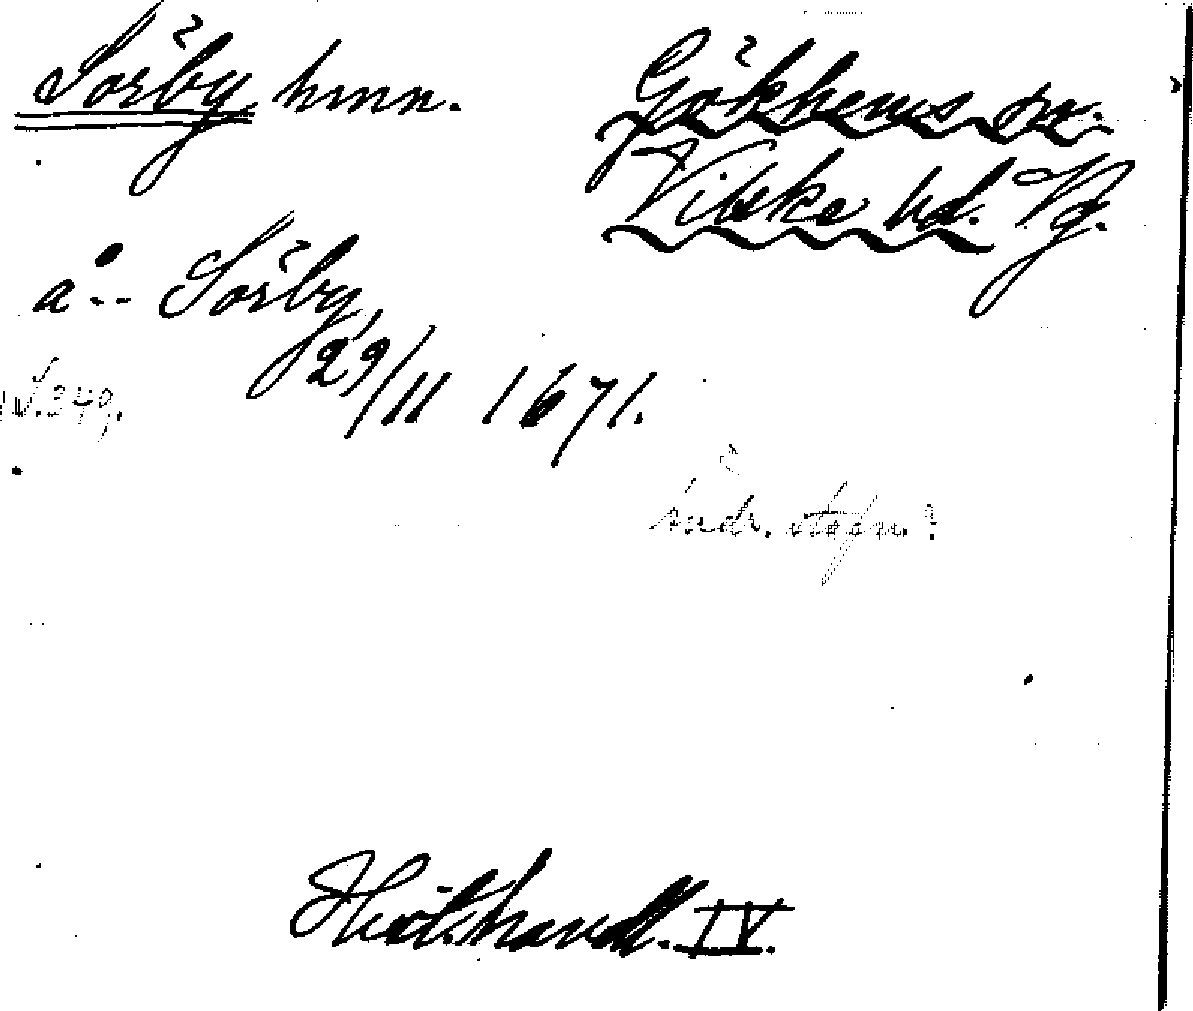 Sörby hmn. Gökhems sn.
Vilske hd. Vg.
å -- Sörby,
29/11 1671.
S. 349.
IV.